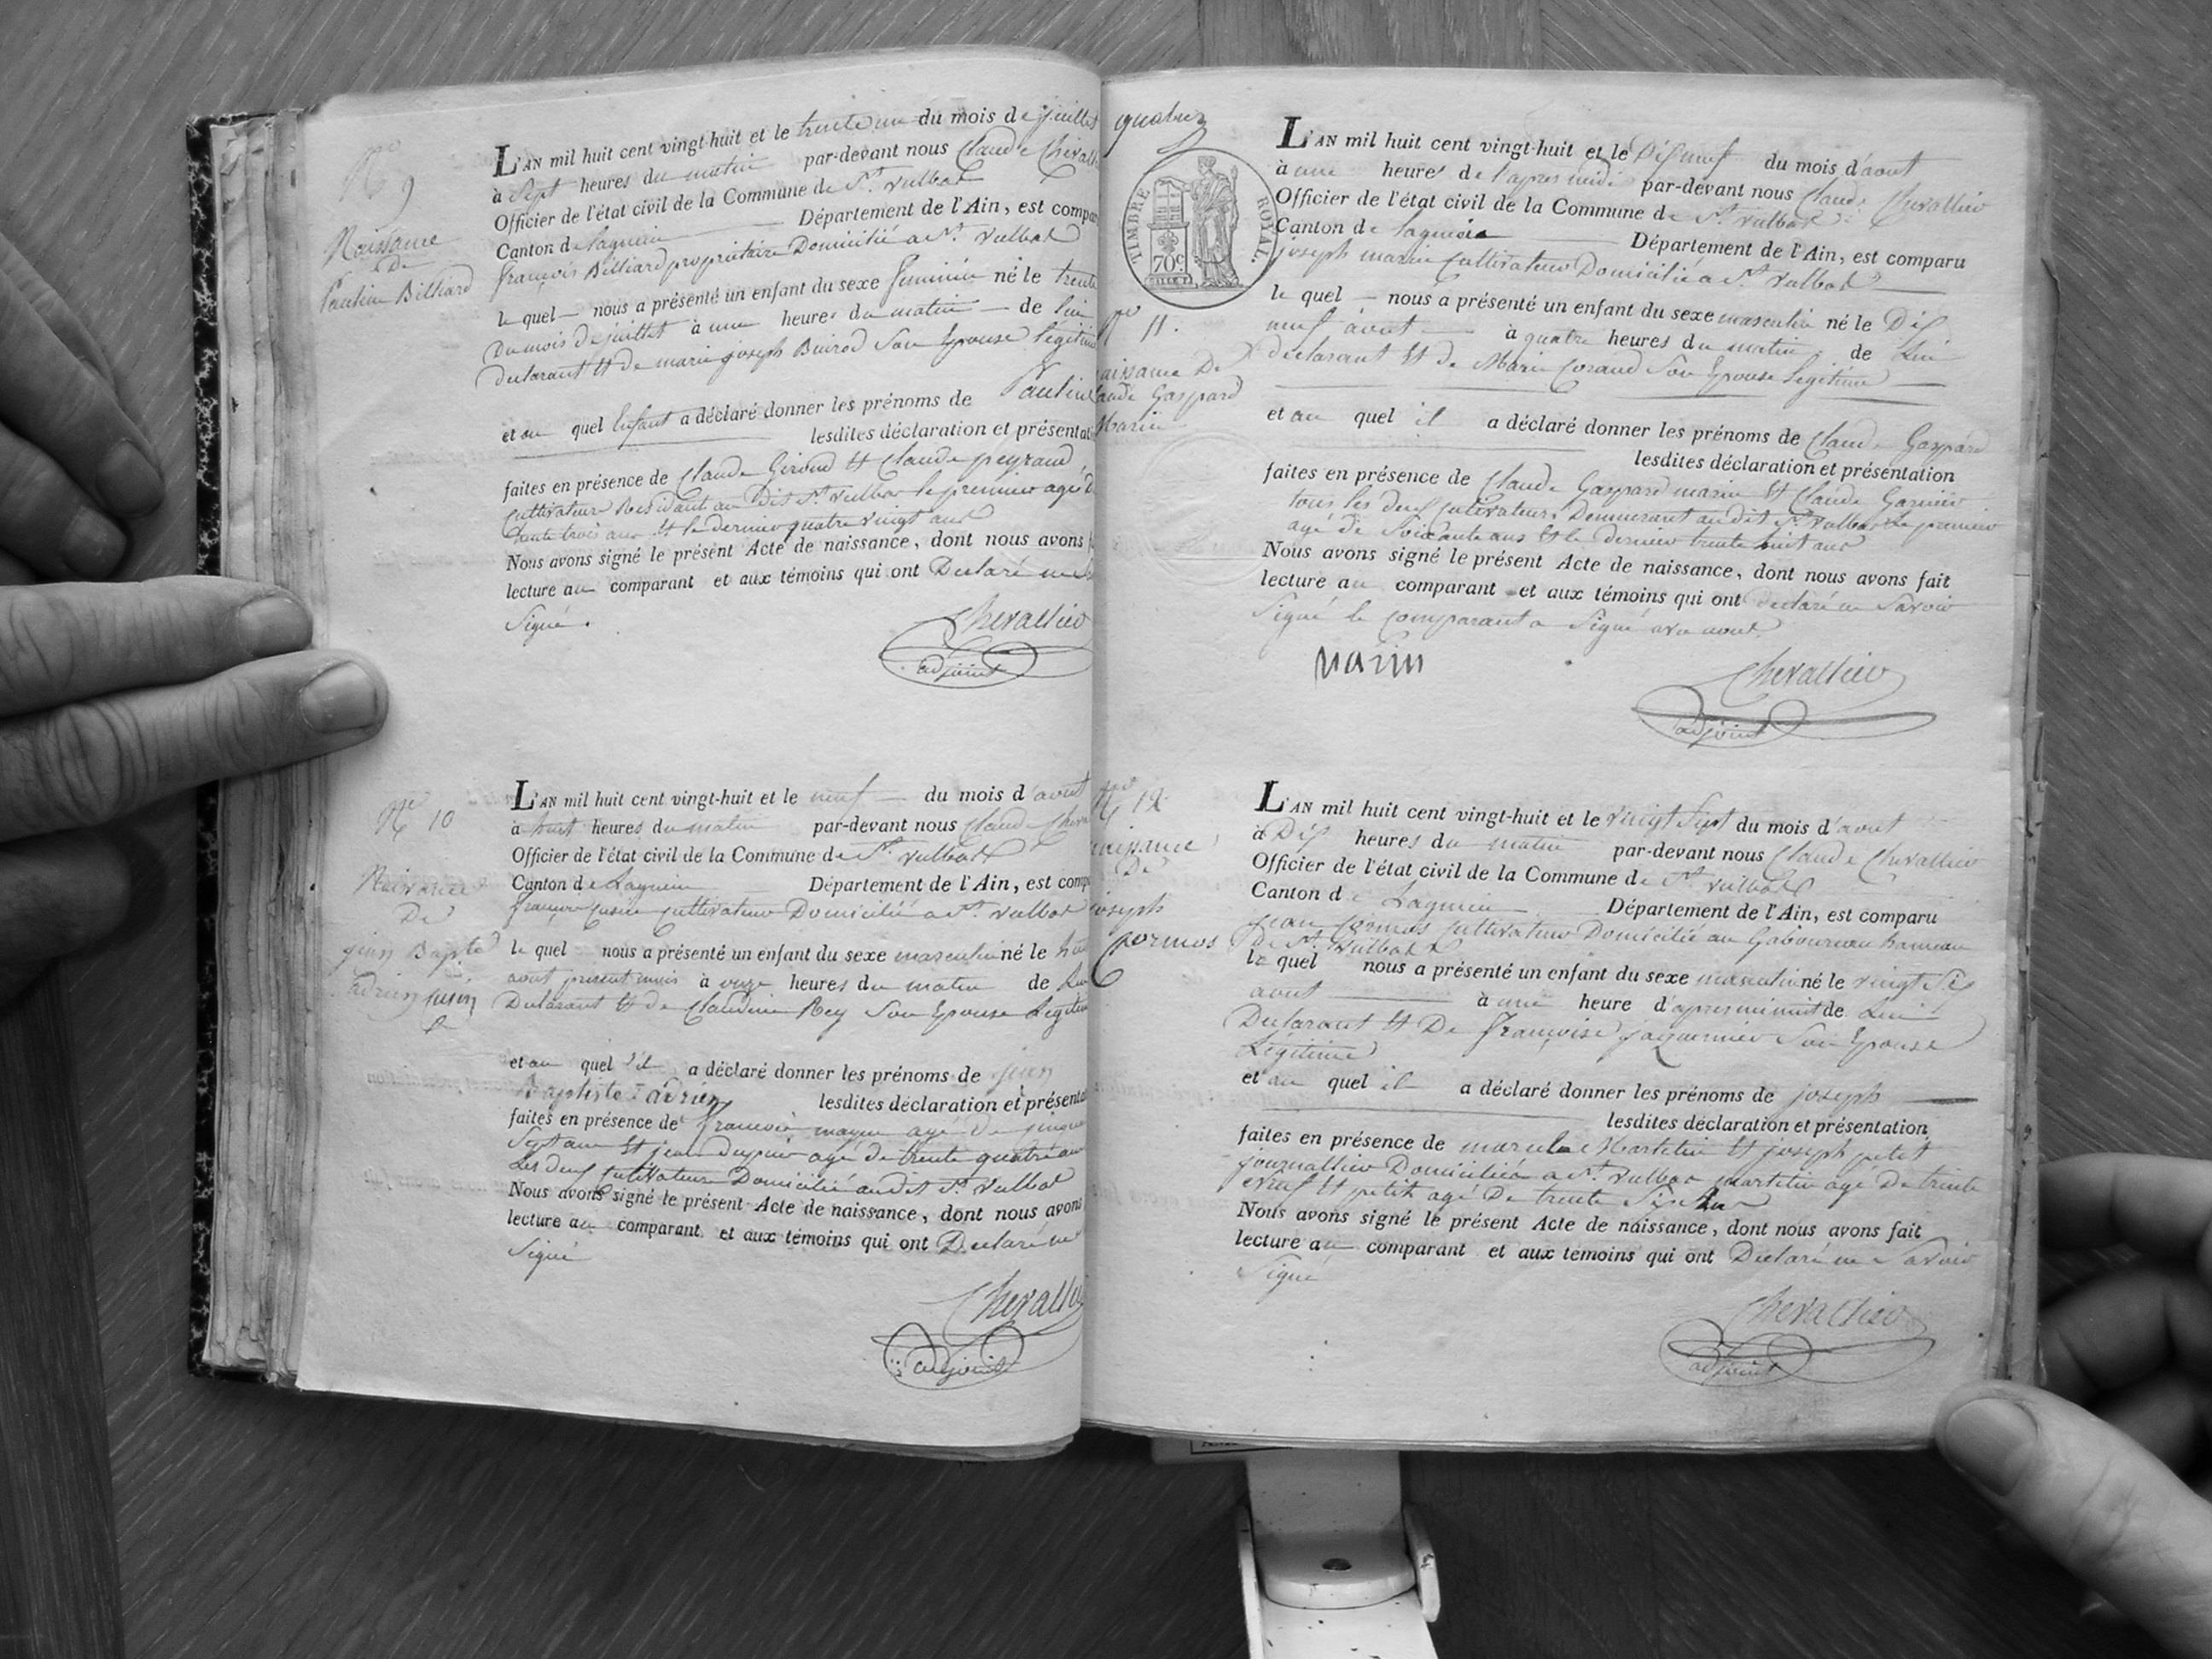 N° 9
Naissance
De
Pauline Billiard
L'AN mil huit cent vingt-huit et le trente un du mois de juillet
à Sept heures du matin par-devant nous Claude Cheval
Officier de l'état civil de la Commune de St. Vulbas
Canton de Lagnieu Département de l'Ain, est compar
françois Billiard propriétaire Domicilié a St. Vulbas
le quel nous a présenté un enfant du sexe feminin né le trente
Du mois de juillet à une heures du matin de lui
declarant et de marie joseph Son Epouse legitime
et au quel Enfant a déclaré donner les prénoms de Pauline
lesdites déclaration et présentati
faites en présence de Claude Giroud et Claude peyraud
Cultivateur Residant au Dit St. Vulbas le premier agé de
trente trois ans et le dernier quatre vingt ans
Nous avons signé le présent Acte de naissance, dont nous avons f
lecture au comparant et aux témoins qui ont Declaré ne
Signé.
Chevallier
adjoint
N° 10
Naissance
De
jean Bapte
adrien
L'AN mil huit cent vingt-huit et le neuf du mois d'aout
à huit heures du matin par-devant nous Claude Cheva
Officier de l'état civil de la Commune de St. Vulbas
Canton de Lagnieu Département de l'Ain, est comp
françois cultivateur Domicilié a St. Vulbas
le quel nous a présenté un enfant du sexe masculin né le
aout present mois à onze heures du matin de Lui
Declarant et de Claudine Rey Son Epouse Legitime
et au quel il a déclaré donner les prénoms de jean
Baptiste adrien lesdites déclaration et présenta
faites en présence de françois agé De
Sept ans et jean Dupuis agé de trente quatre ans
Les deux Cultivateur Domicilié audit St. Vulbas
Nous avons signé le présent Acte de naissance, dont nous avons
lecture au comparant et aux témoins qui ont Declaré ne
Signé
Chevallier
adjoint
quatre
TIMBRE ROYAL
70c
N° 11.
aissance De
laude Gaspard
Marin
L'AN mil huit cent vingt-huit et le Dix neuf du mois d'aout
à une heures de l'apres midi par-devant nous Claude Chevallier
Officier de l'état civil de la Commune de St. Vulbas
Canton de Lagnieu Département de l'Ain, est comparu
joseph marin Cultivateur Domicilié a St. Vulbas
le quel nous a présenté un enfant du sexe masculin né le Dix
neuf aout à quatre heures du matin de Lui
declarant et de Marie Corand Son Epouse legitime
et au quel il a déclaré donner les prénoms de Claude Gaspard
lesdites déclaration et présentation
faites en présence de Claude Gaspard marin et Claude Garnier
tous les deux Cultivateurs Demeurant au dit St. Vulbas Le premier
agé de Soixante ans et le dernier trente huit ans
Nous avons signé le présent Acte de naissance, dont nous avons fait
lecture au comparant et aux témoins qui ont declaré ne Savoir
Signé le comparant a Signé avec nous.
marin
Chevallier
adjoint
N° 12
naissance
De
joseph
Cormos
L'AN mil huit cent vingt-huit et le vingt Sept du mois d'aout
à Dix heures du matin par-devant nous Claude Chevallier
Officier de l'état civil de la Commune de St. Vulbas
Canton de Lagnieu Département de l'Ain, est comparu
jean Cormos cultivateur Domicilié au Gaboureau hameau
De St. Vulbas
le quel nous a présenté un enfant du sexe masculin né le vingt Six
aout à une heure d'apres minuit de Lui
Declarant et De françoise jaquemier Son Epouse
Légitime
et au quel il a déclaré donner les prénoms de joseph
lesdites déclaration et présentation
faites en présence de Martelin et joseph petit
journallier Domiciliés a St. Vulbas martelin agé De trente
neuf et petit agé De trente Six ans
Nous avons signé le présent Acte de naissance, dont nous avons fait
lecture au comparant et aux témoins qui ont Declaré ne Savoir
Signé
Chevallier
adjoint